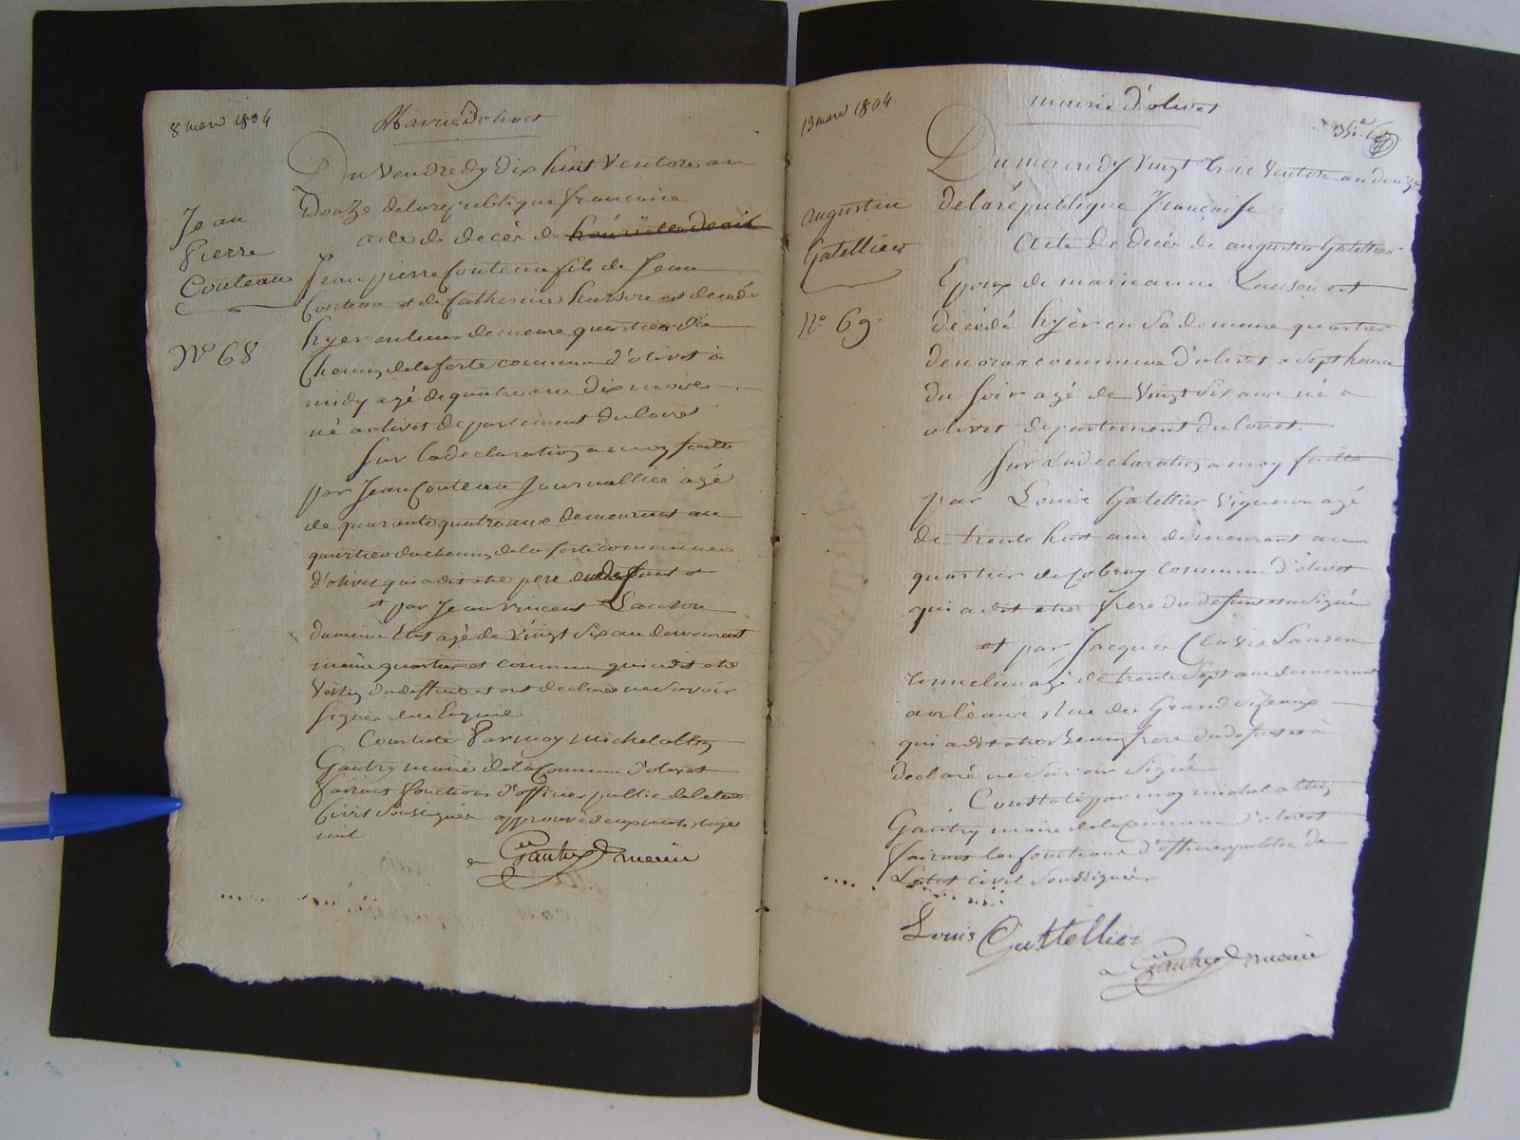 8 mars 1804
Mairie d'olivet
Du vendredy dix huit Ventose an
Douze de la republique francaise
acte de decès de
Jean
Pierre
Couteau
Jean pierre Couteau fils de Jean
Couteau et de Catherine est decedé
hyer en sa demeure quartier du
N° 68
Chemin de la ferté commune d'olivet à
midy agé de quatre ans dix mois
né a olivet departement du Loiret
Sur la declaration a moy faitte
par Jean Couteau Journallier agé
de quarante quatre ans demeurant au
quartier du chemin de la ferté commune
d'olivet qui a dit etre pere du deffunt
et par Jean Vincent
agé de vingt six ans demeurant
même quartier et commune qui a dit etre
Voisin du deffunt et ont declaré ne savoir
signer
Constaté par moy michel
Gautry maire de la Commune d'olivet
faisant fonctions d'officier public de l'etat
Civil Soussigné approuvé
nul
Gautry maire
13 mars 1804
mairie d'olivet
Du mercredy vingt deux Ventose an douze
de la république Française
augustin
Gatellier
Acte de decès de augustin Gatellier
Epoux de marianne Lanson est
N° 69
decédé hyèr en sa demeure quartier
commune d'olivet a sept heures
du soir agé de vingt six ans né a
olivet departement du loiret
Sur la declaration a moy faitte
par Louis Gatellier vigneron agé
de trente huit ans demeurant au
quartier de commune d'olivet
qui a dit etre frere du defunt
et par Jacques Lanson
tonnelier agé de trente sept ans demeurant
a orléans rue des Grand
qui a dit etre beau frere du defunt a
declaré ne savoir signé
Constaté par moy michel
Gautry maire de la Commune d'olivet
faisant les fonctions d'officier public de
L'etat civil Soussigné
Louis Gattellier
Gautry maire